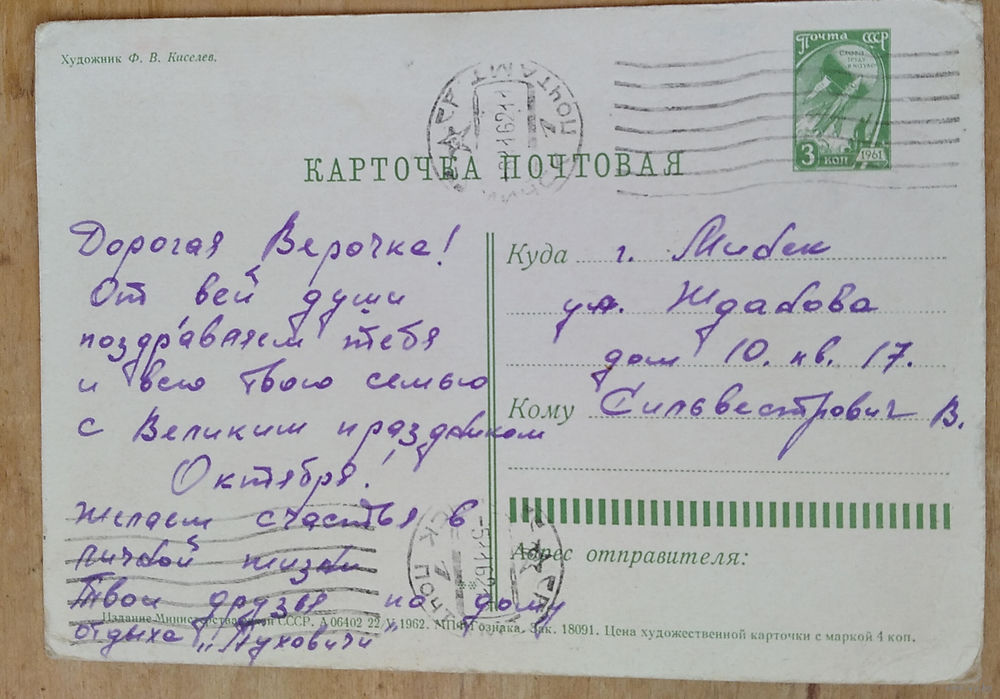 Художник Ф. В. Киселев.
Почта СССР
3 коп 1961
ПОЧТАМТ
КАРТОЧКА ПОЧТОВАЯ
Дорогая Верочка!
От всей души
поздравляем тебя
и всю твою семью
с Великим праздником
Октября!
Желаем счастья в
личной жизни
Твои друзья по дому
отдыха „Пуховичи"
Куда г. Минск
ул. Жданова
дом 10. кв. 17.
Кому Сильвестрович В.
Адрес отправителя:
Издание Министерства СССР. А 06402 22/V 1962. Зак. 18091. Цена художественной карточки с маркой 4 коп.